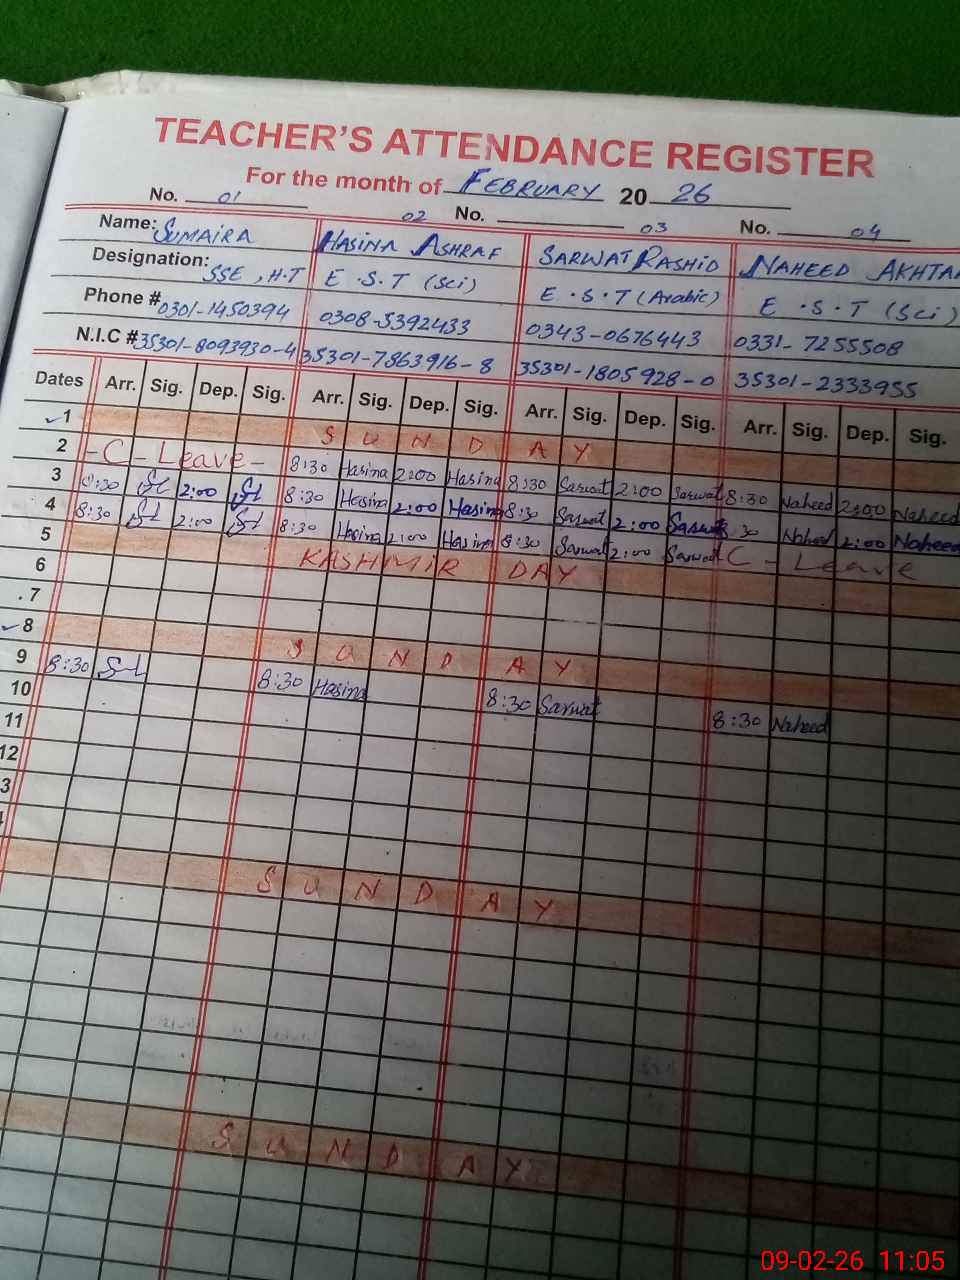 TEACHER'S ATTENDANCE REGISTER
For the month of FEBRUARY 20 26
No. 01 02 No. 03 No. 04
Name: SUMAIRA HASINA ASHRAF SARWAT RASHID NAHEED AKHTA
Designation: SSE , H.T E . S . T (Sci) E . S . T (Arabic) E . S . T (Sci)
Phone # 0301-1450394 0308-5392433 0343-0676443 0331-7255508
N.I.C # 35301-8093930-4 35301-7863916-8 35301-1805928-0 35301-2333955
Dates Arr. Sig. Dep. Sig. Arr. Sig. Dep. Sig. Arr. Sig. Dep. Sig. Arr. Sig. Dep. Sig.
1 S U N D A Y
2 -C-Leave- 8:30 Hasina 2:00 Hasina 8:30 Sarwat 2:00 Sarwat 8:30 Naheed 2:00 Naheed
3 8:30 2:00 8:30 Hasina 2:00 Hasina 8:30 Sarwat 2:00 Sarwat 8:30 Naheed 2:00 Naheed
4 8:30 2:00 8:30 Hasina 2:00 Hasina 8:30 Sarwat 2:00 Sarwat C - Leave
5 KASHMIR DAY
6
7
8 S U N D A Y
9 8:30 8:30 Hasina 8:30 Sarwat 8:30 Naheed
10
11
12
3
S U N D A Y
S U N D A Y
09-02-26 11:05